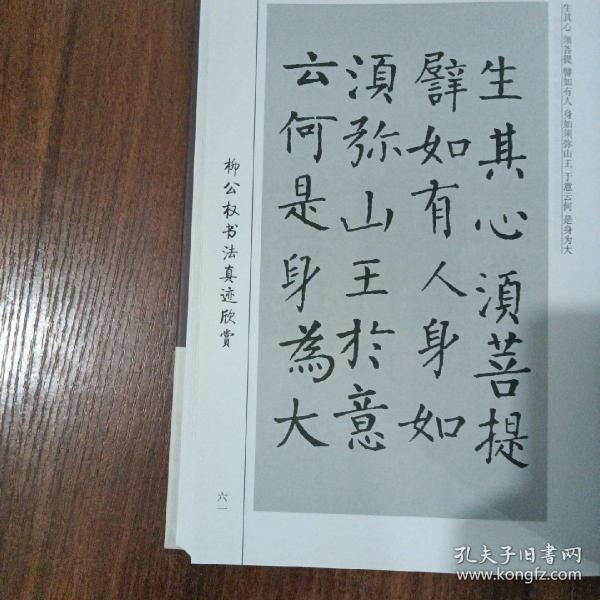 生其心 须菩提 譬如有人 身如须弥山王 于意云何 是身为大
生其心須菩提
譬如有人身如
須弥山王於意
云何是身為大
柳公权书法真迹欣赏
六一
孔夫子旧书网
www.kongfz.com